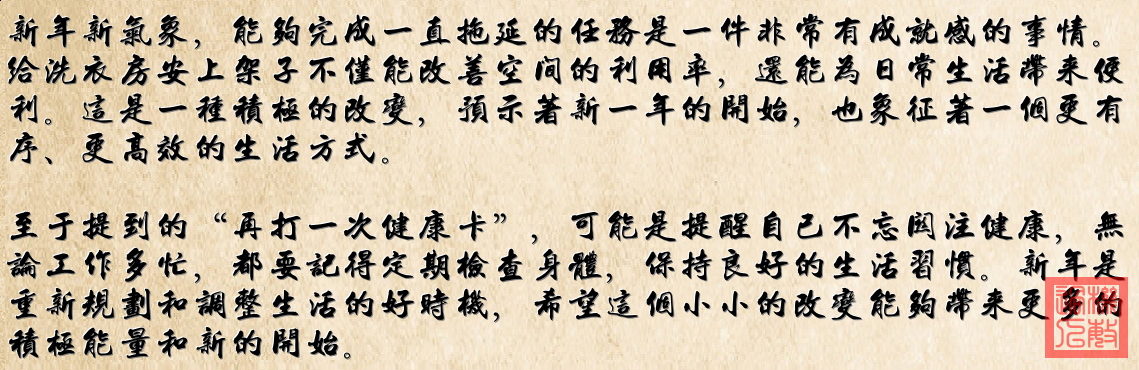 新年新氣象，能夠完成一直拖延的任務是一件非常有成就感的事情。
給洗衣房安上架子不僅能改善空间的利用率，還能為日常生活帶来便
利。這是一種積極的改變，預示著新一年的開始，也象征著一個更有
序、更高效的生活方式。
至于提到的“再打一次健康卡”，可能是提醒自己不忘関注健康，無
論工作多忙，都要記得定期檢查身體，保持良好的生活習慣。新年是
重新規劃和調整生活的好時機，希望這個小小的改變能夠帶来更多的
積極能量和新的開始。